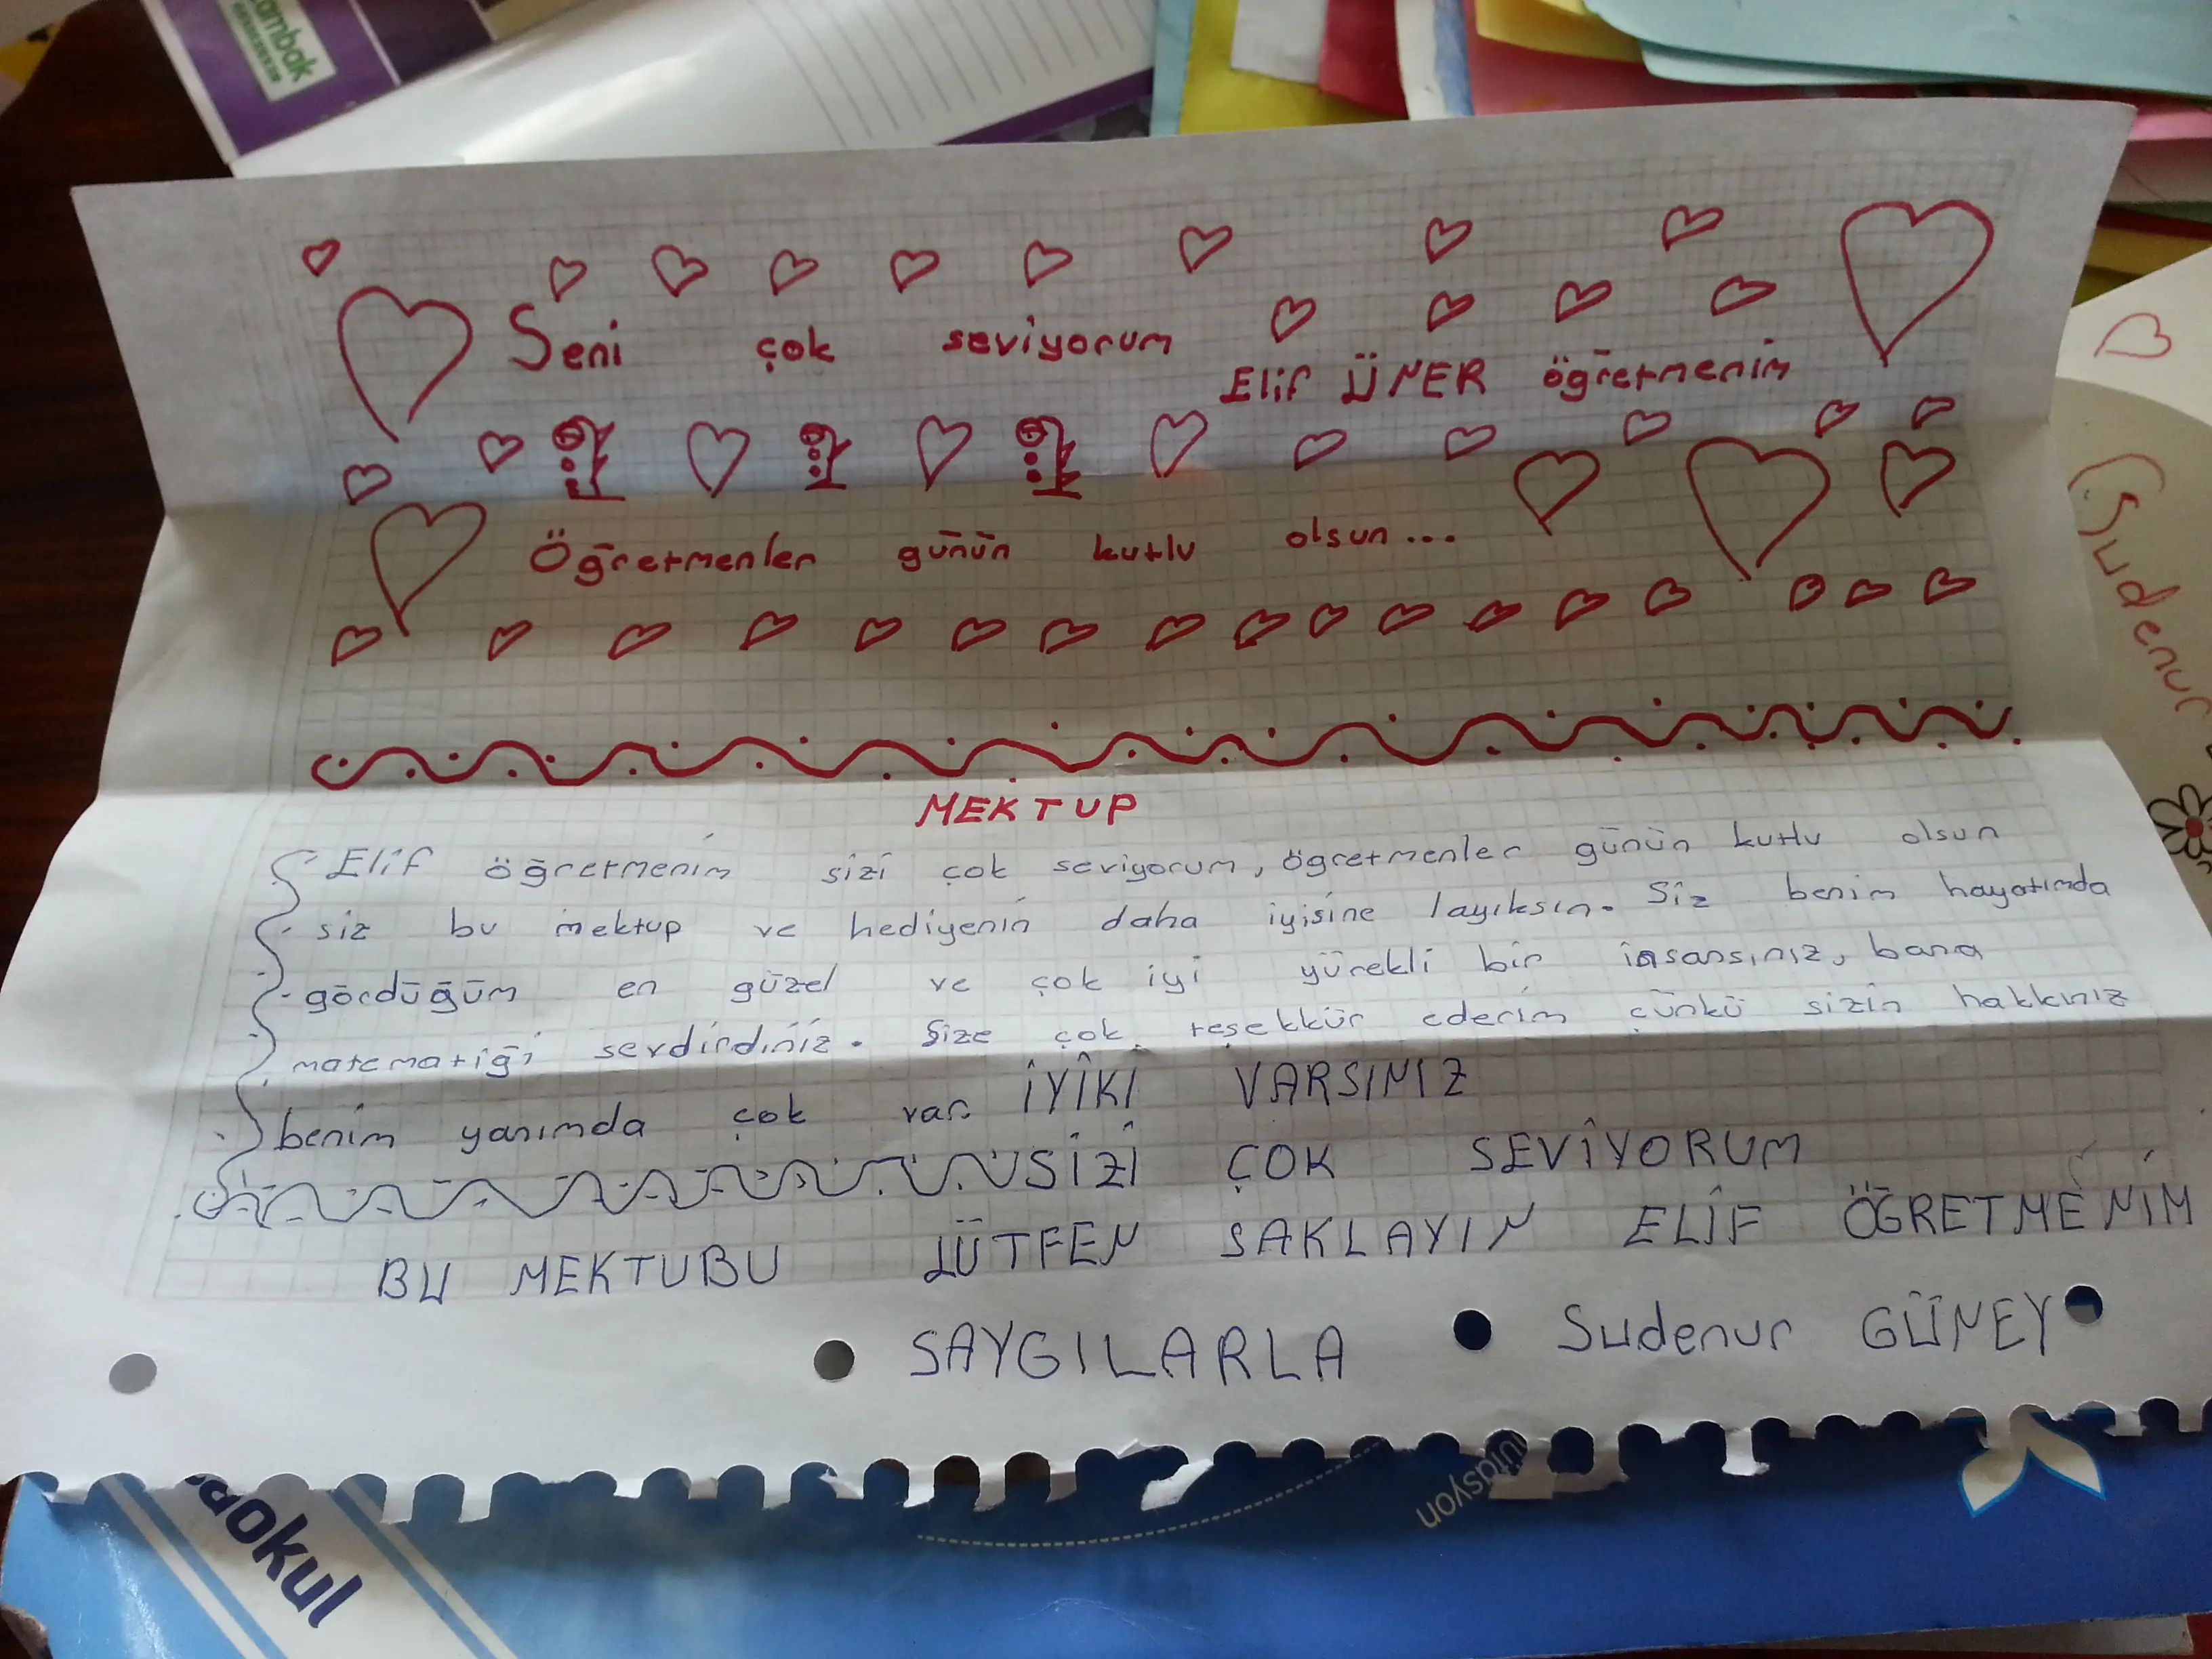 ambak
Seni çok seviyorum
Elif ÜNER öğretmenim
Öğretmenler günün kutlu olsun...
Sudenur
MEKTUP
Elif öğretmenim sizi çok seviyorum, ögretmenler günün kutlu olsun
siz bu mektup ve hediyenin daha iyisine layıksın. Siz benim hayatımda
gördüğüm en güzel ve çok iyi yürekli bir insansınız, bana
matematiği sevdirdiniz. Size çok teşekkür ederim çünkü sizin hakkınız
benim yanımda çok var. İYİKİ VARSINIZ
SİZİ ÇOK SEVİYORUM
BU MEKTUBU LÜTFEN SAKLAYIN ELİF ÖĞRETMENİM
SAYGILARLA Sudenur GÜNEY
aokul